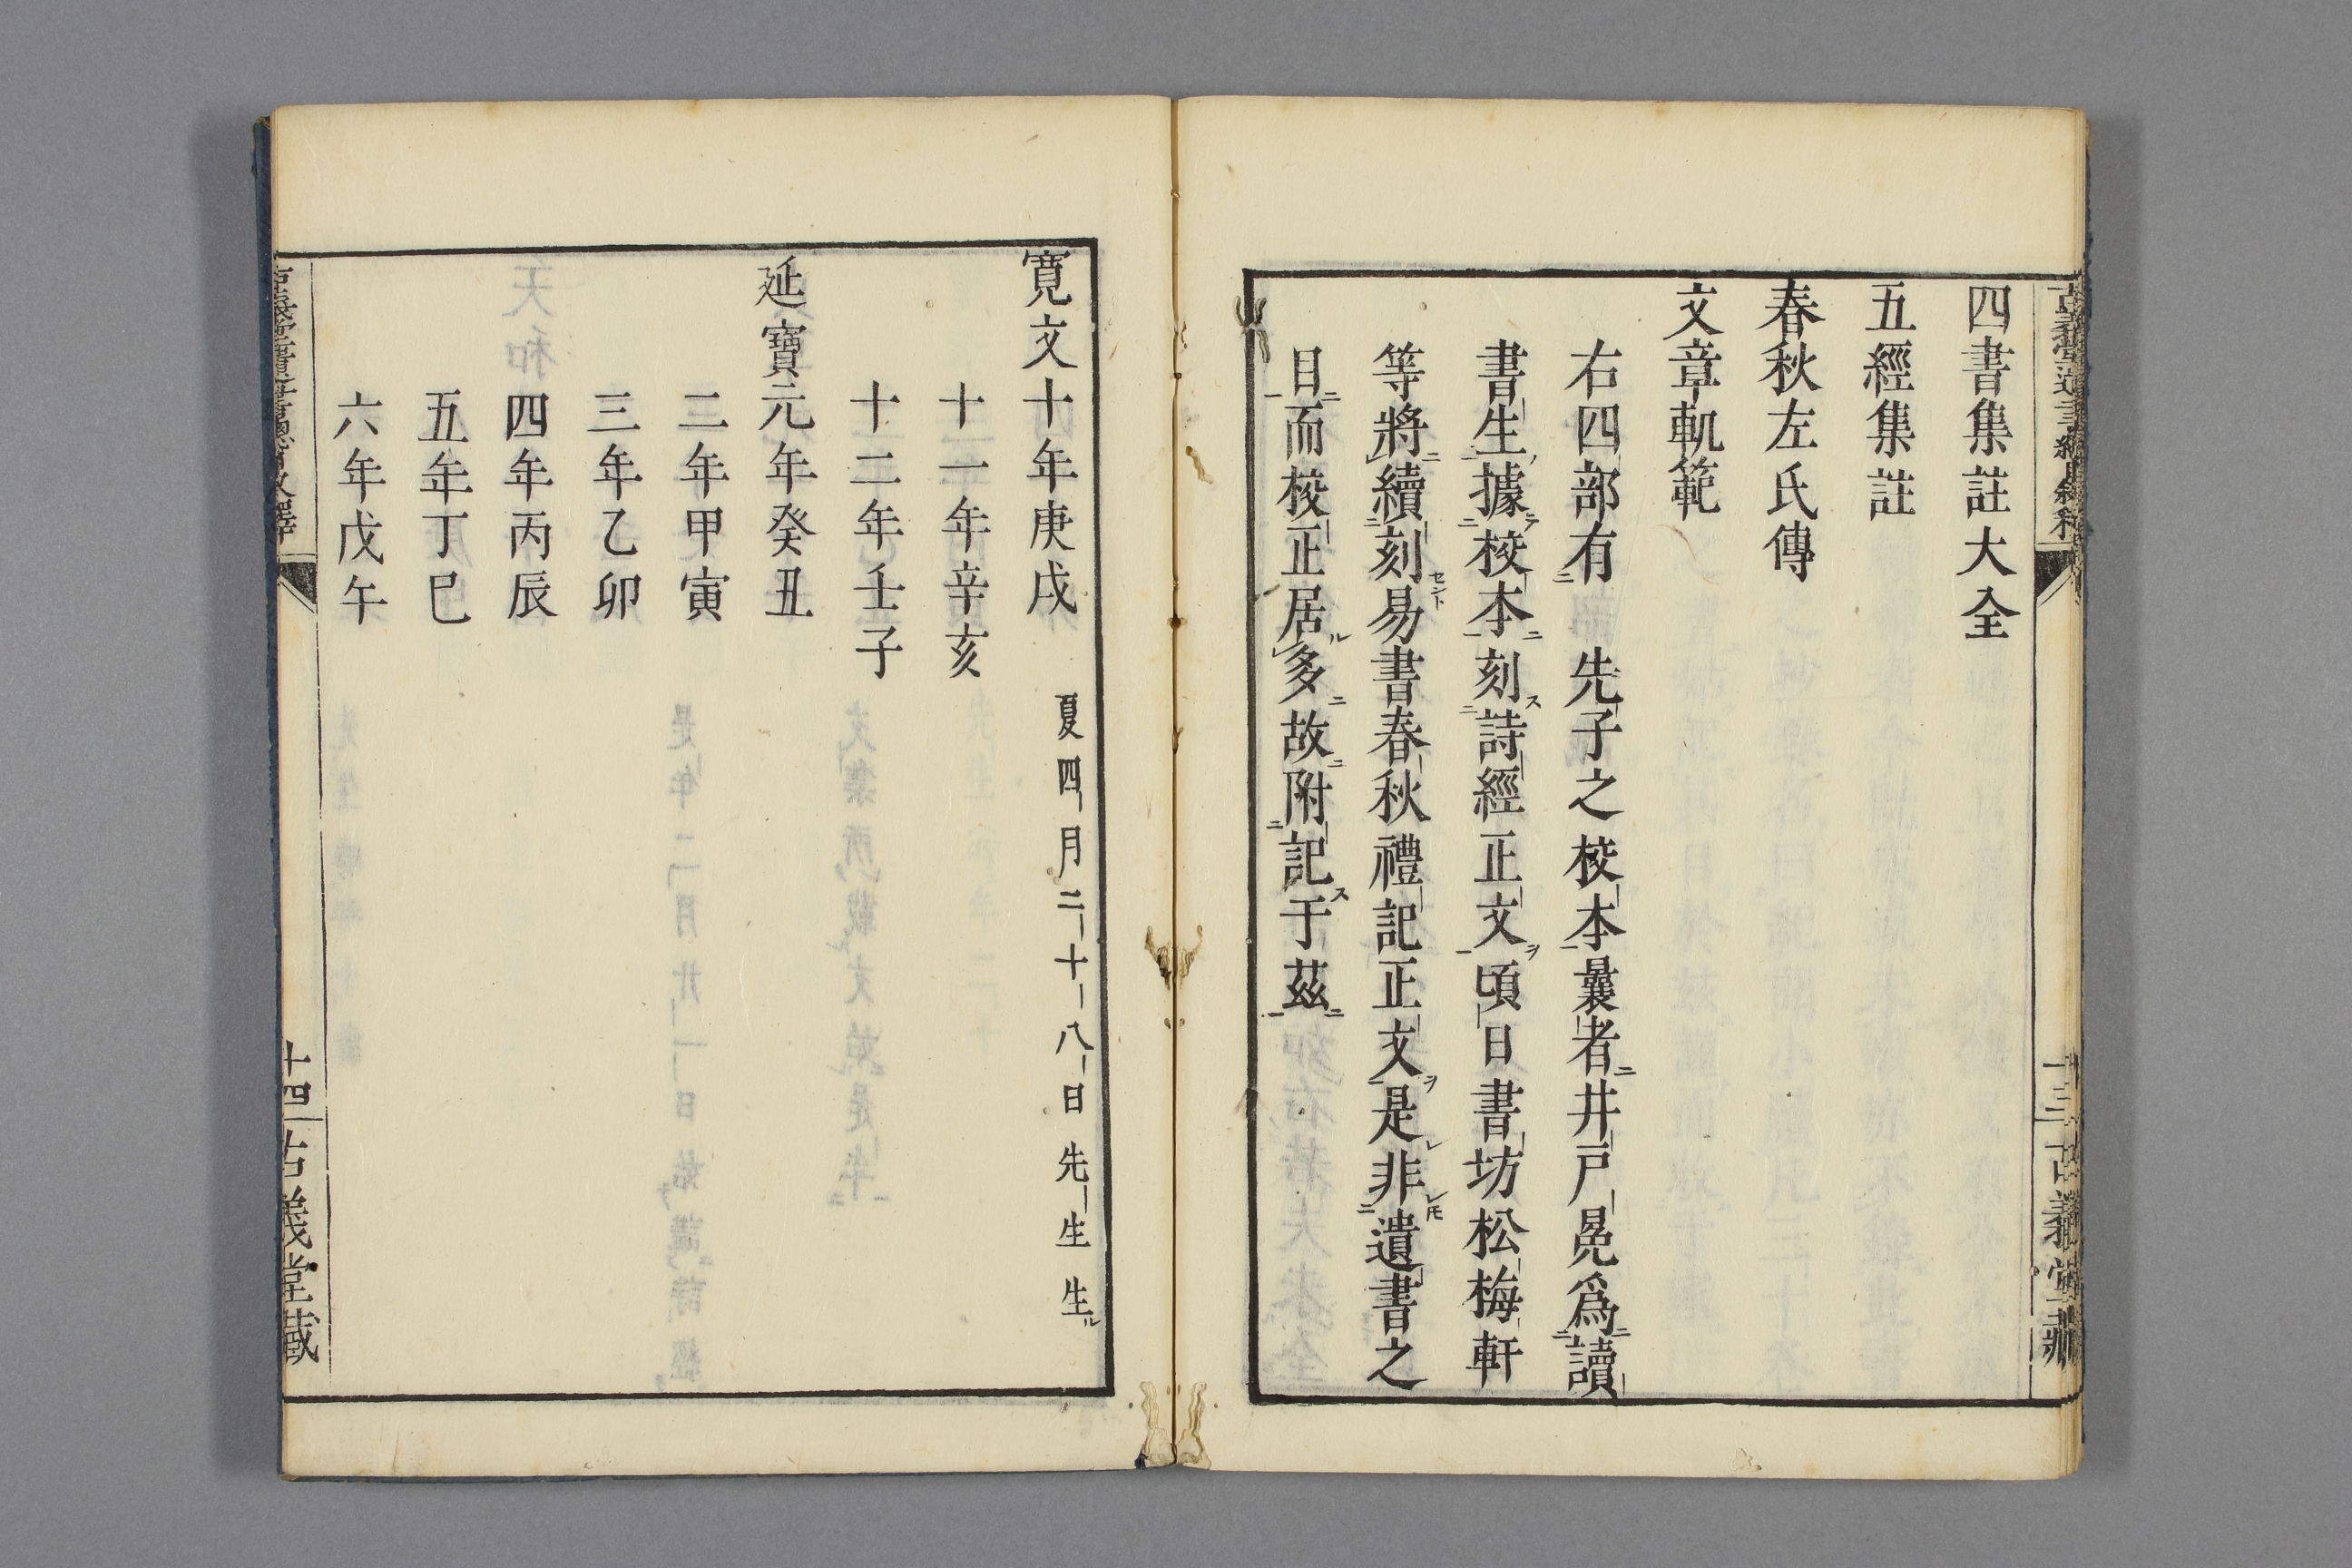 四書集註大全
五經集註
春秋左氏傳
文章軌範
右四部有　先子之校本曩者井戸晃爲讀
書生據校本刻詩經正文頃日書坊松梅軒
等將續刻易書春秋禮記正文是非遺書之
目而校正居多故附記于茲
十三　古義堂藏
寛文十年庚戌　夏四月二十八日先生生
十一年辛亥
十二年壬子
延寶元年癸丑
二年甲寅
三年乙卯
四年丙辰
五年丁巳
六年戊午
十四　古義堂藏